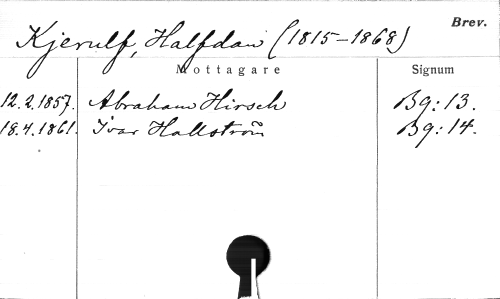 Brev.
Kjerulf, Halfdan (1815-1868)
Mottagare Signum
12.2.1857. Abraham Hirsch Bq: 13.
18.4.1861. Ivar Hallström Bq: 14.